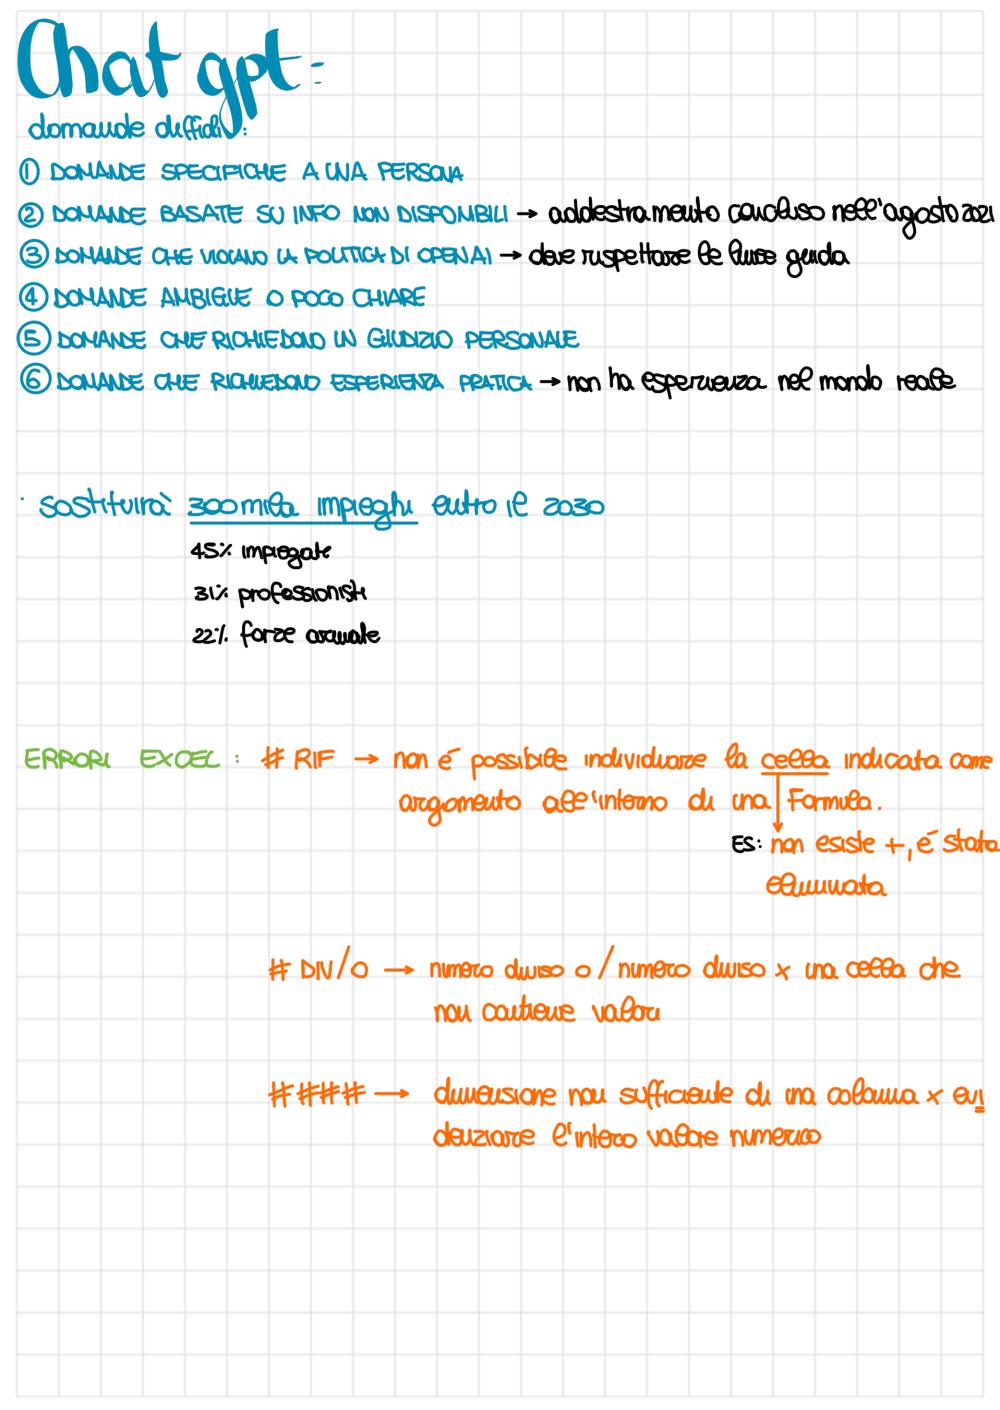 Chat gpt:
domande difficili:
① DOMANDE SPECIFICHE A UNA PERSONA
② DOMANDE BASATE SU INFO NON DISPONIBILI → addestramento concluso nell'agosto 2021
③ DOMANDE CHE VIOLANO LA POLITICA DI OPENAI → deve rispettare le linee guida
④ DOMANDE AMBIGUE O POCO CHIARE
⑤ DOMANDE CHE RICHIEDONO UN GIUDIZIO PERSONALE
⑥ DOMANDE CHE RICHIEDONO ESPERIENZA PRATICA → non ha esperienza nel mondo reale
· sostituirà 300mila impieghi entro il 2030
45% impiegate
31% professionisti
22% forze armate
ERRORI EXCEL: # RIF → non é possibile individuare la cella indicata come
argomento all'interno di una Formula.
ES: non esiste +, é stata
eliminata
# DIV/0 → numero diviso 0 / numero diviso x una cella che
non contiene valori
#### → dimensione non sufficiente di una colonna x evi
denziare l'intero valore numerico